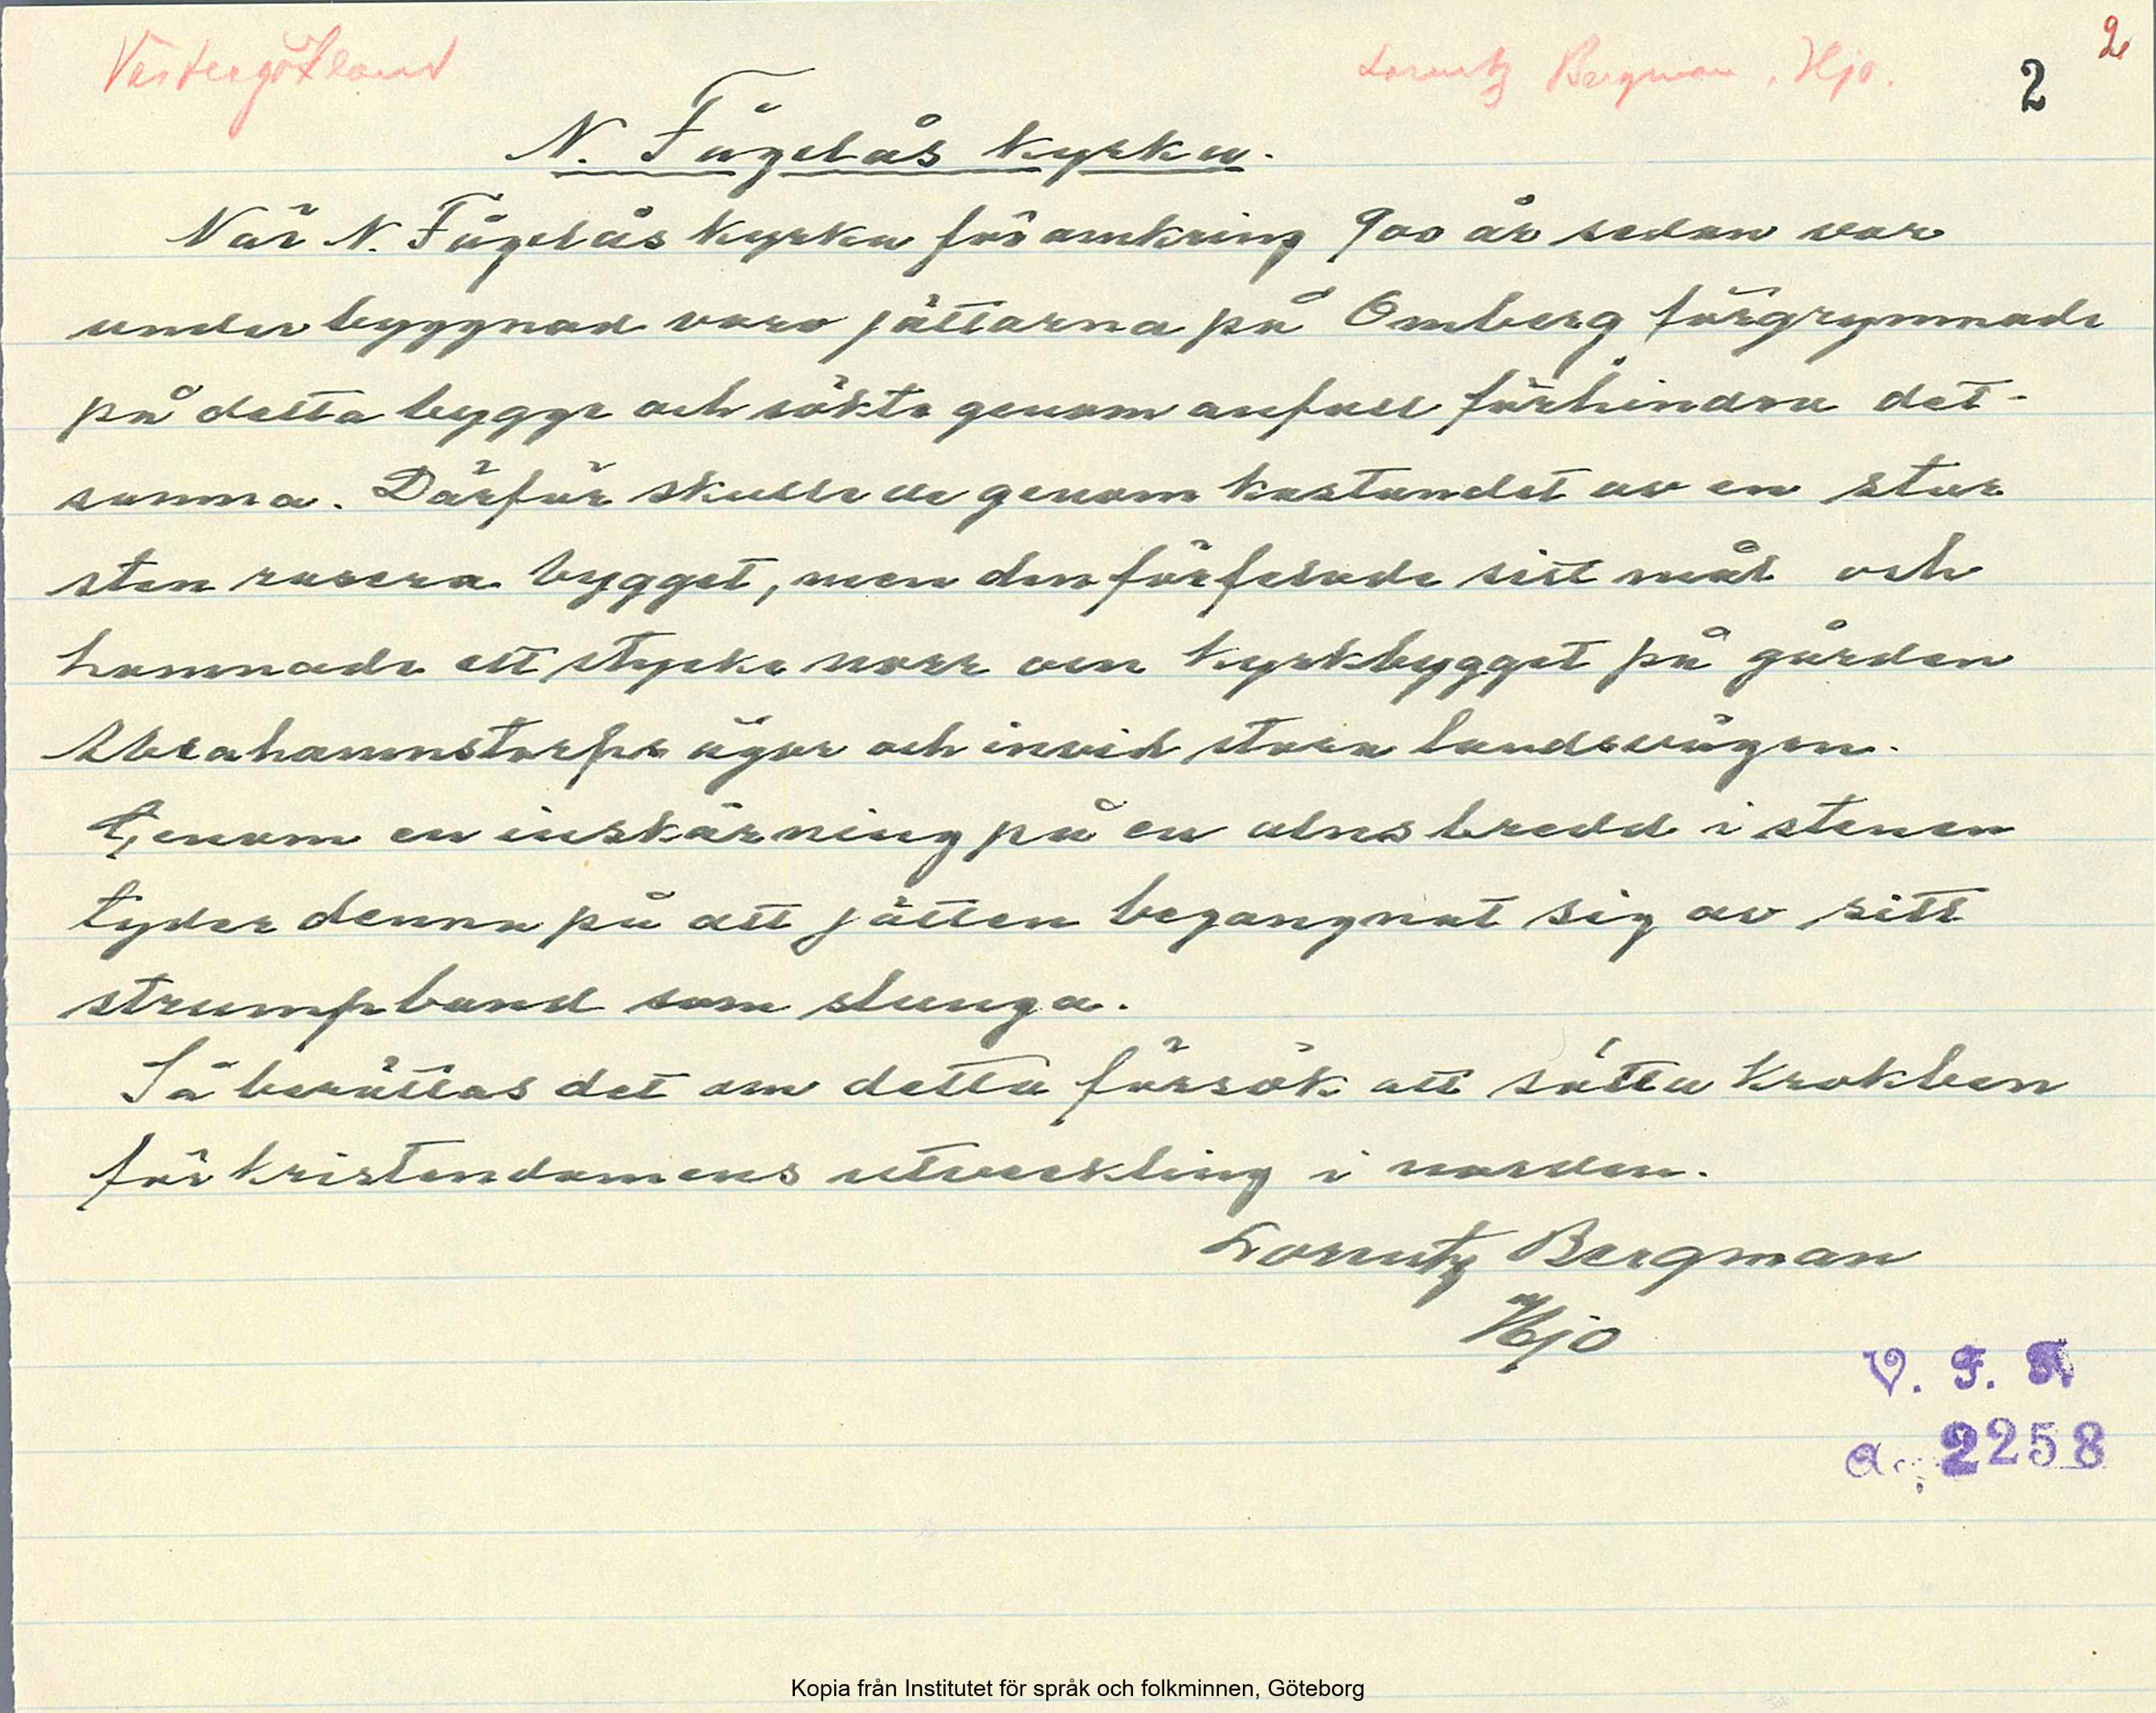 Västergötland
Lorentz Bergman, Hjo.
2
2
N. Fågelås kyrka.
När N. Fågelås kyrka för omkring 900 år sedan var
under byggnad voro jättarna på Omberg förgrymmade
på detta bygge och sökte genom anfall förhindra det-
samma. Därför skulle de genom kastandet av en stor
sten rasera bygget, men den förfelade sitt mål och
hamnade ett stycke norr om kyrkbygget på gården
Abrahamnstorps ägor och invid stora landsvägen.
Genom en inskärning på en alns bredd i stenen
tyder denna på att jätten begangnat sig av sitt
strumpband som slunga.
Så berättas det om detta försök att sätta krokben
för kristendomens utveckling i norden.
Lorentz Bergman
Hjo
V. F. A
a.: 2258
Kopia från Institutet för språk och folkminnen, Göteborg